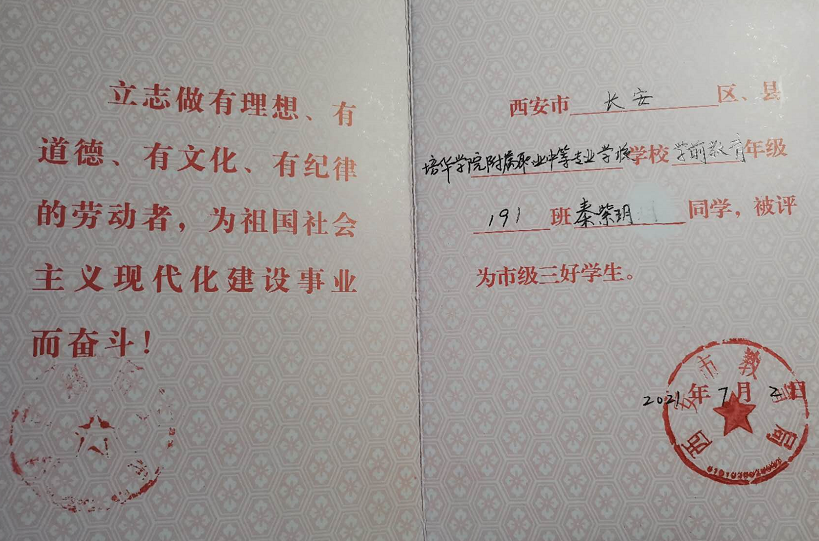 立志做有理想、有
道德、有文化、有纪律
的劳动者，为祖国社会
主义现代化建设事业
而奋斗！
西安市长安区、县
培华学院附属职业中等专业学校学校学前教育年级
191班秦紫玥同学，被评
为市级三好学生。
2021年7月2日
西安市教育局